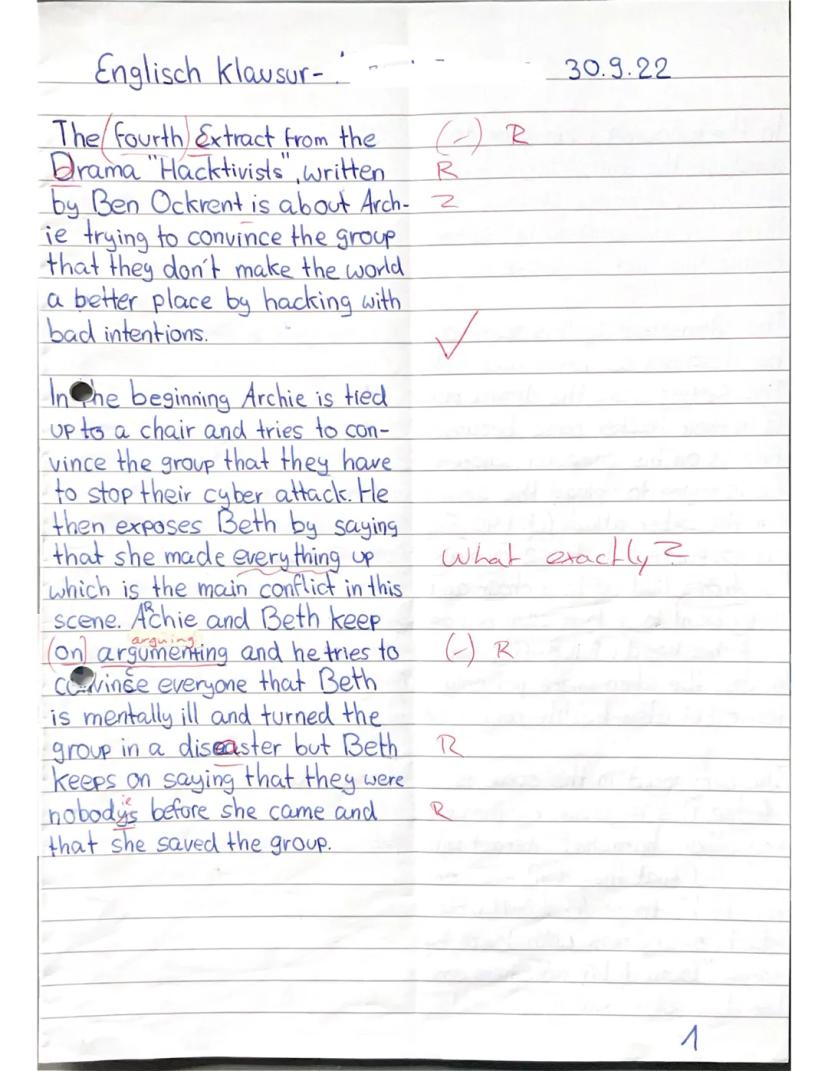 Englisch Klausur- 30.9.22
The (fourth) Extract from the (-) R
Drama "Hacktivists", written R
by Ben Ockrent is about Arch- Z
ie trying to convince the group
that they don't make the world
a better place by hacking with
bad intentions. ✓
In the beginning Archie is tied
up to a chair and tries to con-
vince the group that they have
to stop their cyber attack. He
then exposes Beth by saying
that she made everything up What exactly?
which is the main conflict in this
scene. Archie and Beth keep
arguing
(on) argumenting and he tries to (-) R
convince everyone that Beth
is mentally ill and turned the
group in a diseaster but Beth R
keeps on saying that they were
ie
nobodys before she came and R
that she saved the group.
1